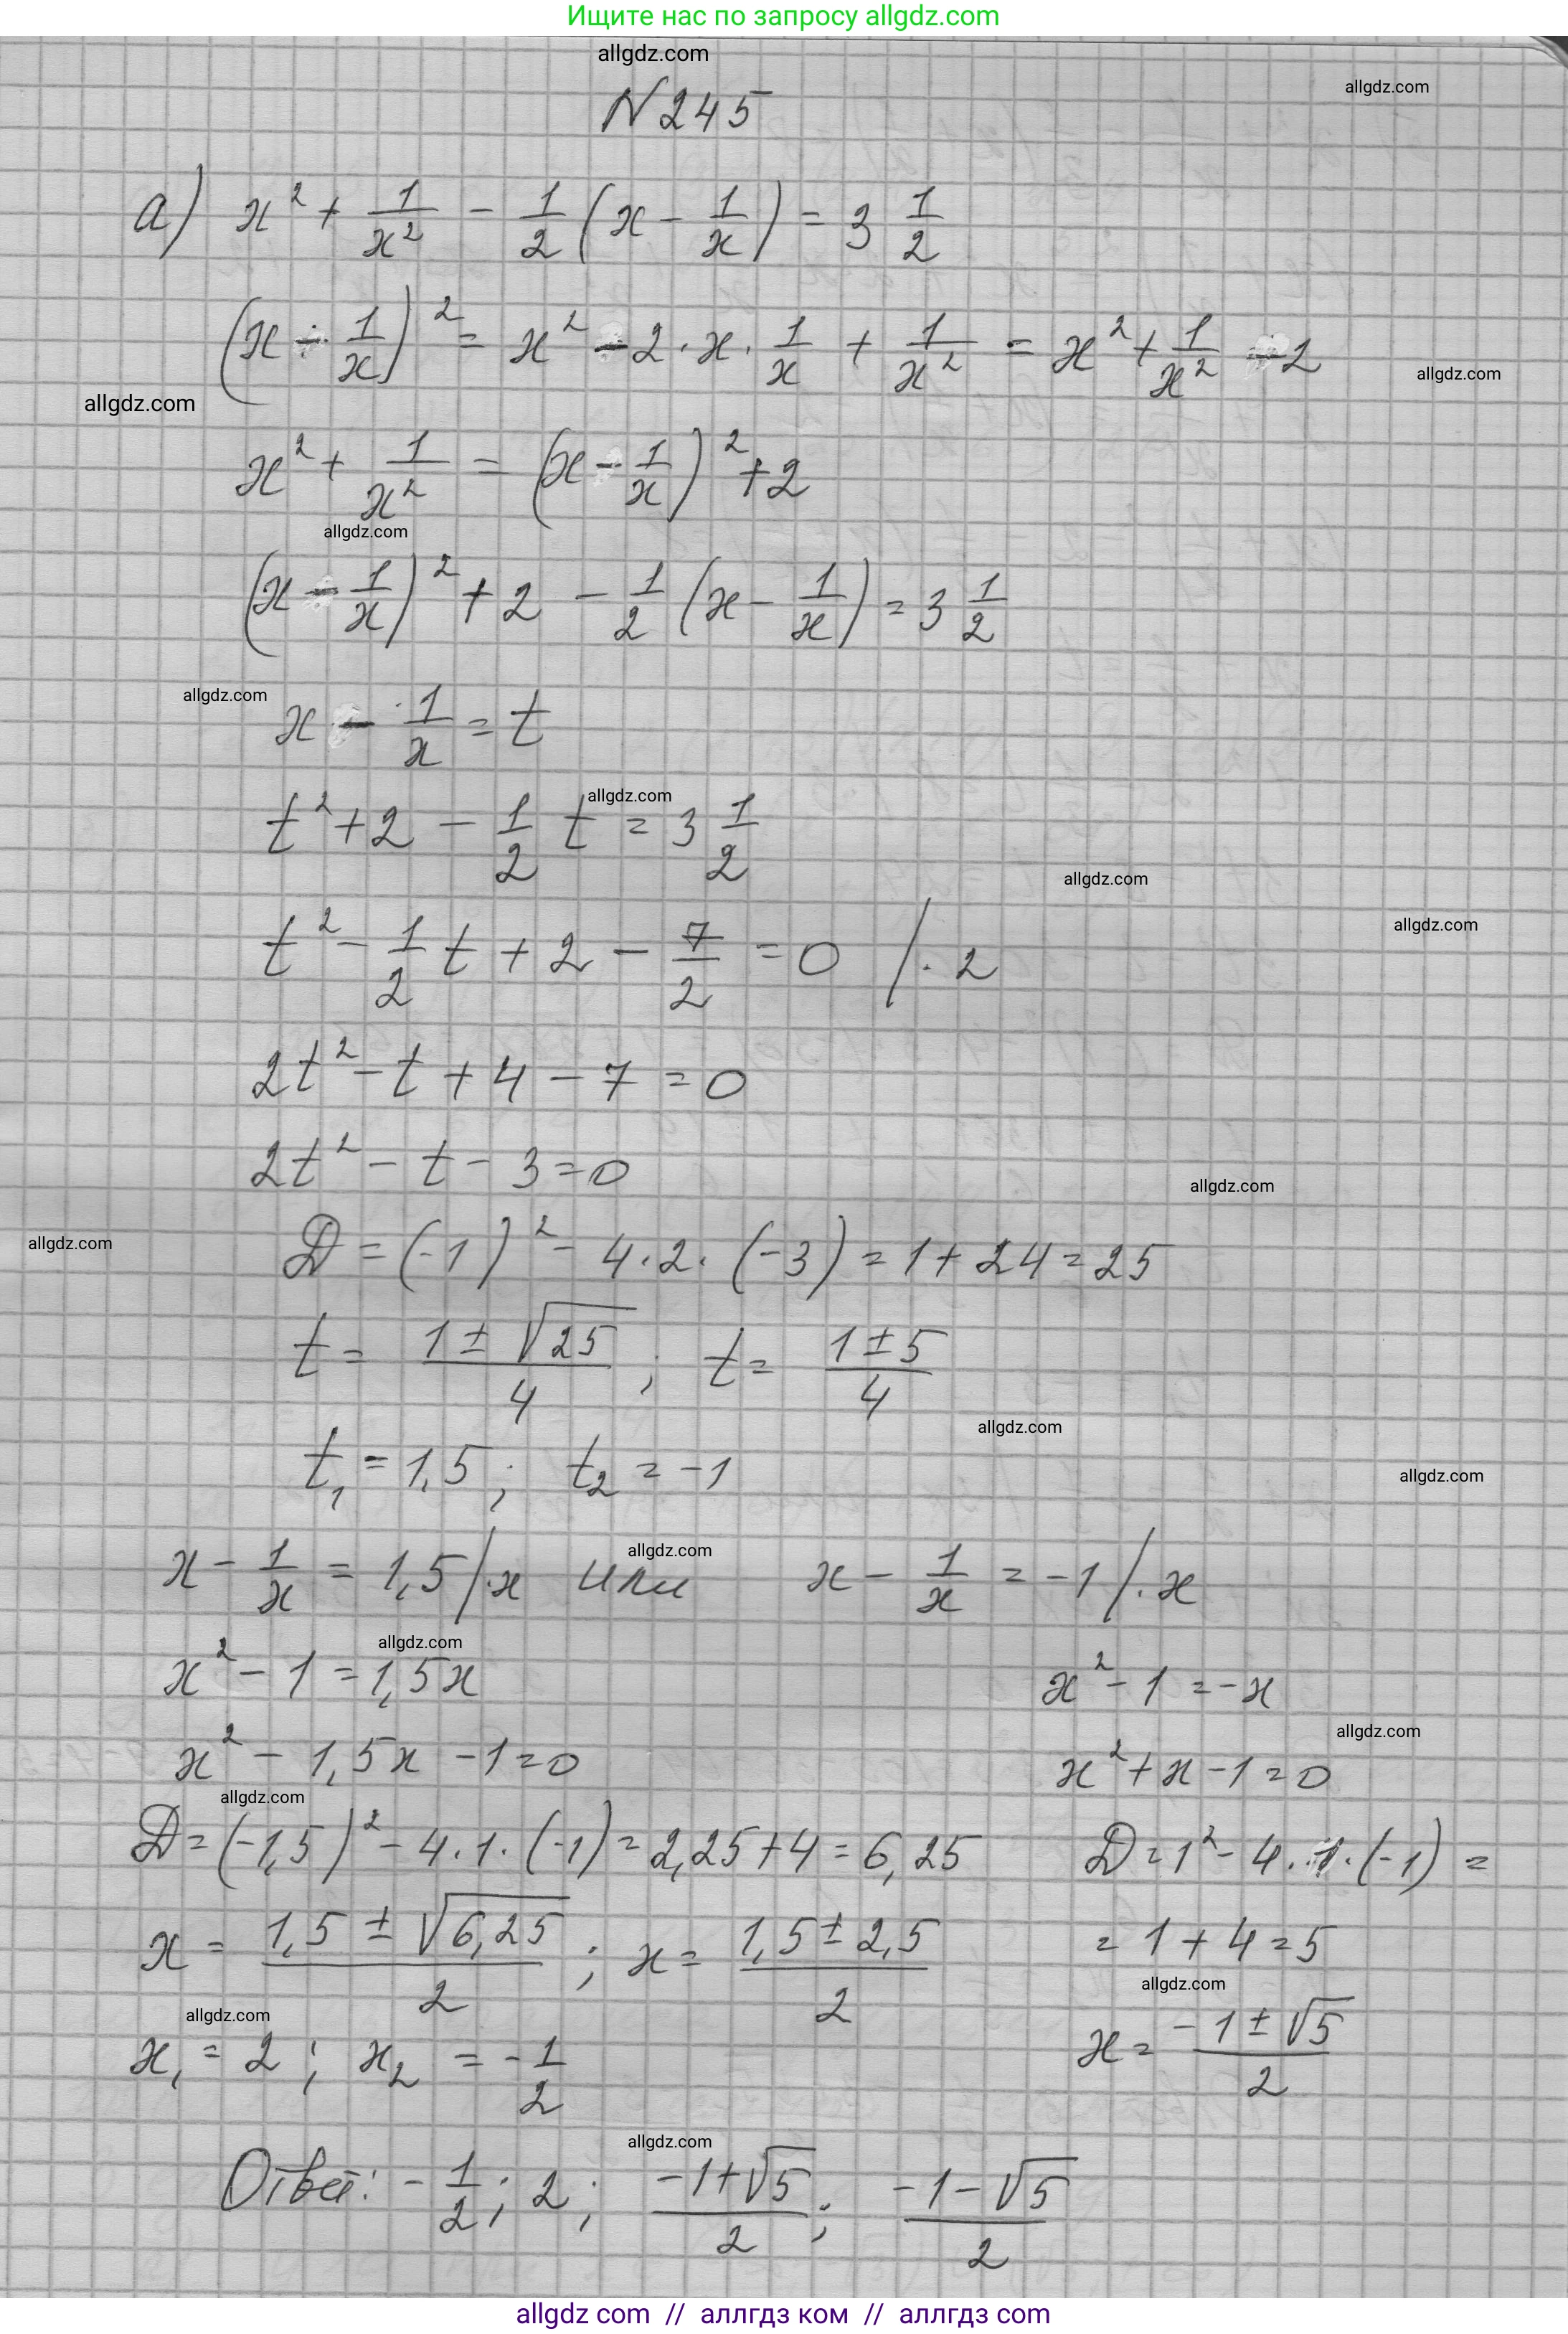 Ищите нас по запросу allgdz.com
allgdz.com
allgdz.com
N 245
а) x² + 1/x² - 1/2 (x - 1/x) = 3 1/2
(x - 1/x)² = x² - 2 · x · 1/x + 1/x² = x² + 1/x² - 2
allgdz.com
allgdz.com
x² + 1/x² = (x - 1/x)² + 2
allgdz.com
(x - 1/x)² + 2 - 1/2 (x - 1/x) = 3 1/2
allgdz.com
x - 1/x = t
allgdz.com
t² + 2 - 1/2 t = 3 1/2
allgdz.com
allgdz.com
t² - 1/2 t + 2 - 7/2 = 0 / · 2
2t² - t + 4 - 7 = 0
2t² - t - 3 = 0
allgdz.com
allgdz.com
D = (-1)² - 4 · 2 · (-3) = 1 + 24 = 25
t = (1 ± √25)/4 ; t = (1 ± 5)/4
allgdz.com
t₁ = 1,5 ; t₂ = -1
allgdz.com
allgdz.com
x - 1/x = 1,5 / · x или x - 1/x = -1 / · x
allgdz.com
x² - 1 = 1,5x x² - 1 = -x
allgdz.com
x² - 1,5x - 1 = 0 x² + x - 1 = 0
allgdz.com
D = (-1,5)² - 4 · 1 · (-1) = 2,25 + 4 = 6,25 D = 1² - 4 · 1 · (-1) =
x = (1,5 ± √6,25)/2 ; x = (1,5 ± 2,5)/2 = 1 + 4 = 5
allgdz.com
allgdz.com
x₁ = 2 ; x₂ = -1/2 x = (-1 ± √5)/2
allgdz.com
Ответ: -1/2 ; 2 ; (-1 + √5)/2 ; (-1 - √5)/2
allgdz com // аллгдз ком // аллгдз com